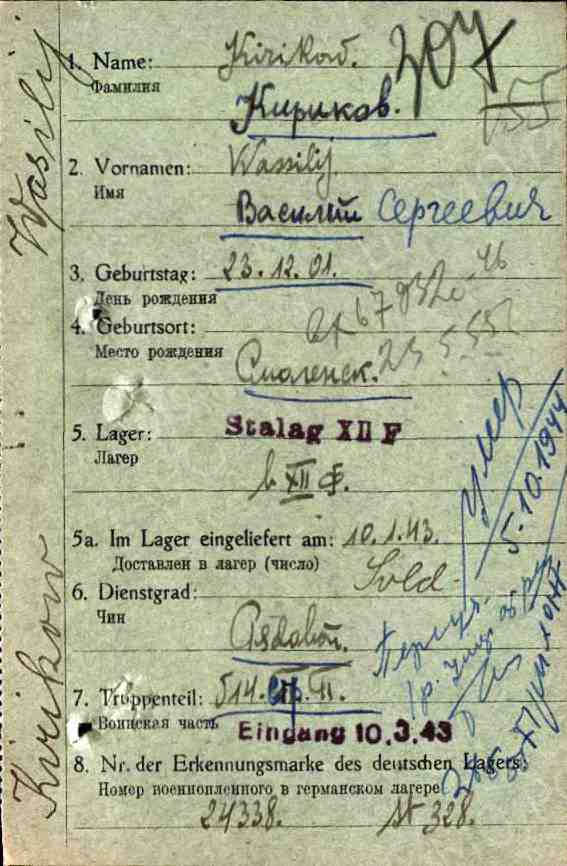 Wasilij
Kirikow
1. Name: Kirikow.
Фамилия
307
Кириков.
2. Vornamen: Wassilij.
Имя
Василий Сергеевич
3. Geburtstag: 23.12.01.
День рождения
4. Geburtsort:
Место рождения
Смоленск.
5. Lager: Stalag XII F
Лагер
XII F.
5a. Im Lager eingeliefert am: 10.1.43.
Доставлен в лагер (число)
6. Dienstgrad: Sold.
Чин
7. Truppenteil: 514.
Воинская часть
Eingang 10.3.43
умер
5.10.1944
8. Nr. der Erkennungsmarke des deutschen Lagers:
Номер военнопленного в германском лагере
24338. St 328.